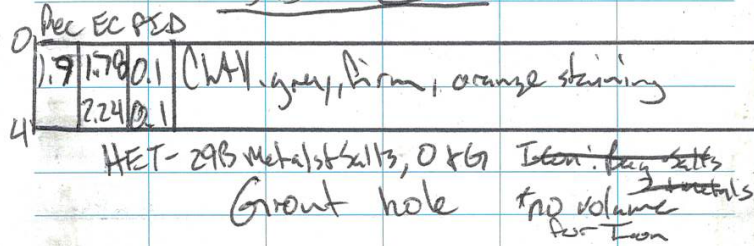 Rec EC PID
0
1.9 1.78 0.1 CLAY, grey, firm, orange staining
2.24 0.1
4
HET-29B Metals+Salts, O+G Icon: Bag Salts
+ metals
Grout hole *no volume
for Icon